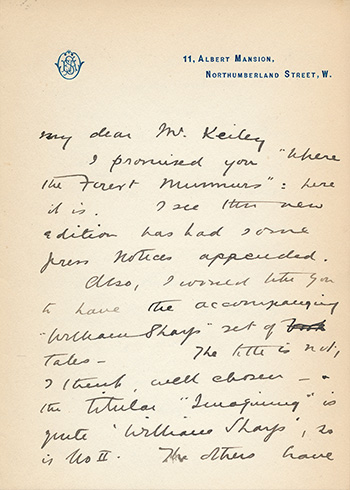 11, Albert Mansion,
Northumberland Street, W.
My dear Mr. Keiley
I promised you "Where
the Forest Murmurs": here
it is. I see this new
edition has had some
press notices appended.
Also, I would like you
to have the accompanying
"William Sharp" set of
tales — The title is not,
I think, well chosen — &
the titular "Imagining" is
quite 'William Sharp', so
is No II. The others have